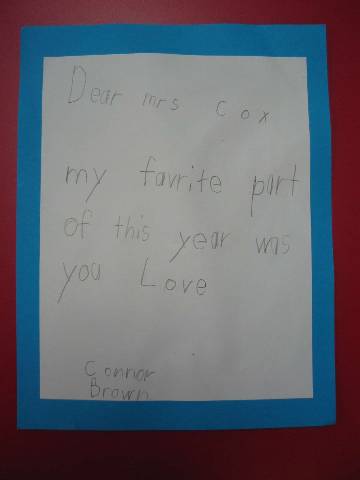 Dear mrs cox
my favrite part
of this year was
you Love
Connor
Brown